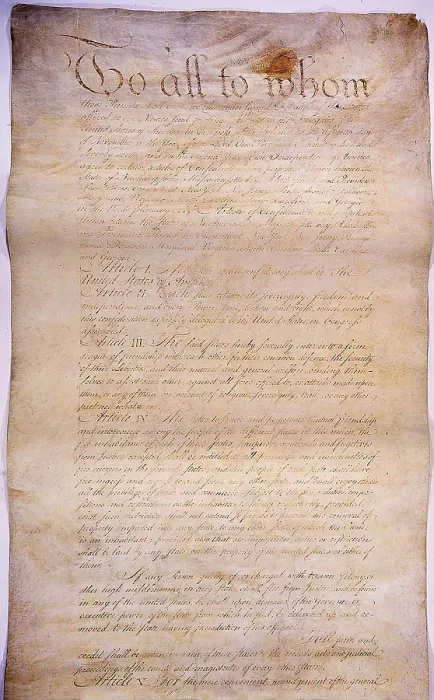 To all to whom
these Presents shall come, we the under signed Delegates of the States
affixed to our Names send greeting. Whereas the Delegates of the
United States of America in Congress assembled did on the fifteenth day
of November in the Year of our Lord One Thousand Seven Hundred and
Seventy seven, and in the Second Year of the Independence of America
agree to certain articles of Confederation and perpetual Union between the
States of Newhampshire, Massachusetts-bay, Rhodeisland and Providence
New York, New Jersey, Pennsylvania, Delaware,
Maryland, Virginia, North-Carolina, South-Carolina and Georgia
in the Words following, viz. Articles of Confederation and perpetual
Union between the States of
and Georgia.
Article I. The Stile of this confederacy shall be "The
United States of America."
Article II. Each state retains its sovereignty, freedom and
independence, and every Power, Jurisdiction and right, which is not by
this confederation expressly delegated to the United States, in Congress
assembled.
Article III. The said states hereby severally enter into a firm
league of friendship with each other, for their common defence, the security
of their Liberties, and their mutual and general welfare, binding them-
selves to assist each other, against all force offered to, or attacks made upon
them, or any of them, on account of religion, sovereignty, trade, or any other
pretence whatever.
Article IV. The better to secure and perpetuate mutual friendship
and intercourse among the people of the different states in this union, the
free inhabitants of each of these states, paupers, vagabonds and fugitives
from Justice excepted, shall be entitled to all privileges and immunities of
free citizens in the several states; and the people of each state shall have
free ingress and regress to and from any other state, and shall enjoy therein
all the privileges of trade and commerce, subject to the same duties, impo-
sitions and restrictions as the inhabitants thereof respectively, provided
that such restriction shall not extend so far as to prevent the removal of
property imported into any state, to any other state of which the Owner
is an inhabitant; provided also that no imposition, duties or restriction
shall be laid by any state, on the property of the united states, or either of
them.
If any Person guilty of, or charged with treason, felony, or
other high misdemeanor in any state, shall flee from Justice, and be found
in any of the united states, he shall upon demand of the Governor or
executive power, of the state from which he fled, be delivered up and re-
moved to the state having jurisdiction of his offence.
Full faith and
credit shall be given in each of these states to the records, acts and judicial
proceedings of the courts and magistrates of every other state.
Article V. For the more convenient management of the general